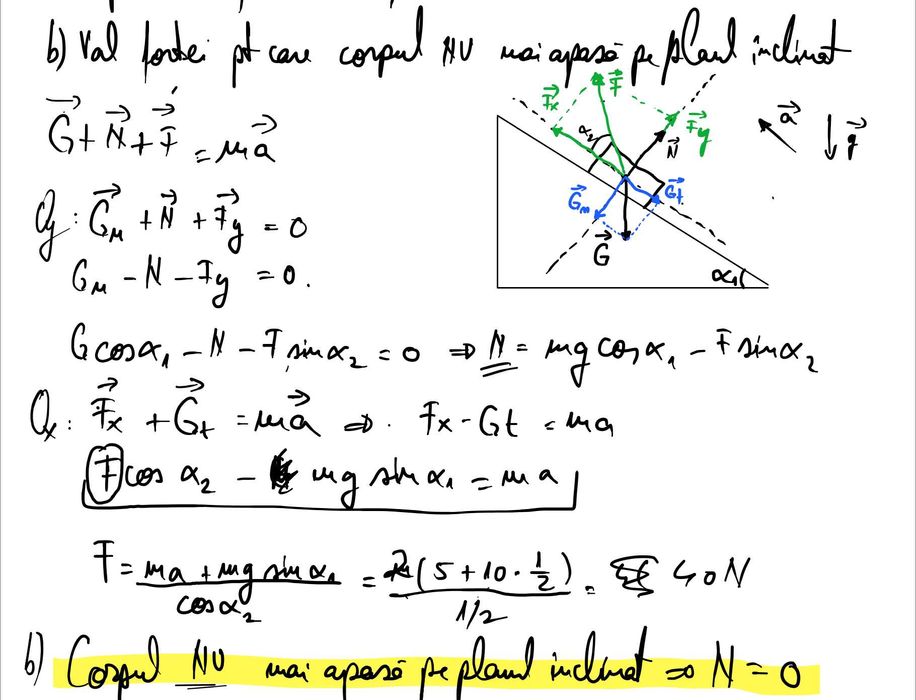 b) Val forței pt care corpul NU mai apasă pe planul înclinat
G⃗ + N⃗ + F⃗ = ma⃗
Oy: G⃗n + N⃗ + F⃗y = 0
Gn - N - Fy = 0.
G cosα₁ - N - F sinα₂ = 0 ⇒ N = mg cosα₁ - F sinα₂
Ox: F⃗x + G⃗t = ma⃗ ⇒ Fx - Gt = ma
F cos α₂ - mg sinα₁ = ma
F = (ma + mg sinα₁)/cosα₂ = 2(5 + 10 · 1/2)/(1/2) = 40 N
b) Corpul NU mai apasă pe planul înclinat ⇒ N = 0
F⃗x
F⃗
F⃗y
N⃗
α₂
G⃗n
G⃗t
G⃗
a⃗
g⃗
α₁